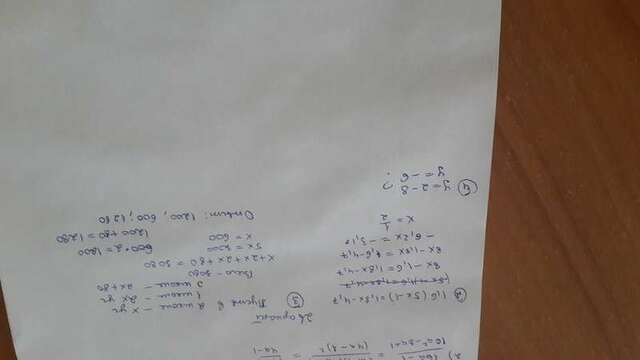 16a²-8a+1 (4a-1)² 4a-1
2 вариант
② 1,6(5x-1)=1,8x-4,7
8x-1,6=1,8x-4,7
8x-1,8x=1,6-4,7
-6,2x=-3,1
x=1/2
③ Пусть в 2 школе - x уч
1 школе - 2x уч
3 школе - 2x+80
Всего - 3080
x+2x+2x+80=3080
5x=3000 600·2=1200
x=600 1200+80=1280
Ответ: 1200; 600; 1280
④ y=2-8 ?
y=-6